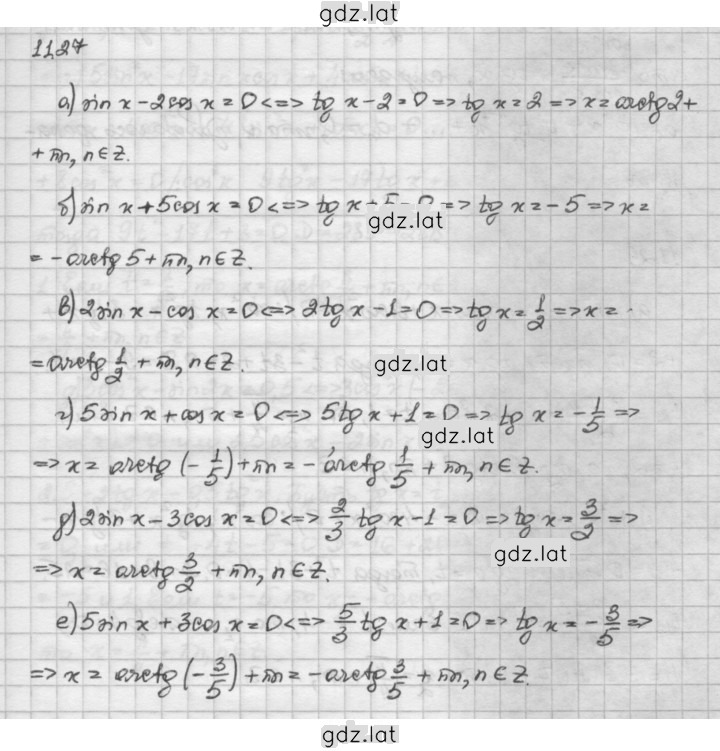 gdz.lat
11.27
а) sin x - 2cos x = 0 <=> tg x - 2 = 0 => tg x = 2 => x = arctg 2 +
+ πn, n ∈ Z.
б) sin x + 5cos x = 0 <=> tg x + 5 = 0 => tg x = -5 => x =
gdz.lat
= -arctg 5 + πn, n ∈ Z.
в) 2 sin x - cos x = 0 <=> 2 tg x - 1 = 0 => tg x = 1/2 => x =
= arctg 1/2 + πn, n ∈ Z.
gdz.lat
г) 5 sin x + cos x = 0 <=> 5 tg x + 1 = 0 => tg x = -1/5 =>
gdz.lat
=> x = arctg (-1/5) + πn = -arctg 1/5 + πn, n ∈ Z.
д) 2 sin x - 3 cos x = 0 <=> 2/3 tg x - 1 = 0 => tg x = 3/2 =>
gdz.lat
=> x = arctg 3/2 + πn, n ∈ Z.
е) 5 sin x + 3 cos x = 0 <=> 5/3 tg x + 1 = 0 => tg x = -3/5 =>
=> x = arctg (-3/5) + πn = -arctg 3/5 + πn, n ∈ Z.
gdz.lat